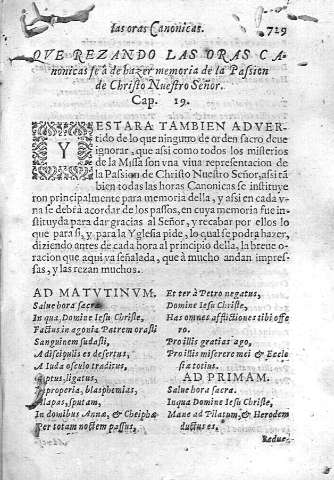 las oras Canonicas.
729
QVE REZANDO LAS ORAS CA-
nonicas se á de hazer memoria de la Passion
de Christo Nuestro Señor.
Cap. 19.
Y ESTARA TAMBIEN ADVER-
tido de lo que ninguno de orden sacro deue
ignorar, que asi como todos los misterios
de la Missa son vna viua representacion de
la Passion de Christo Nuestro Señor, assi tā
bien todas las horas Canonicas se instituye
ron principalmente para memoria della, y asi en cada v
na se debrá acordar de los passos, en cuya memoria fue in
stituyda para dar gracias al Señor, y recabar por ellos lo
que para si, y para la Yglesia pide, lo qual se podra hazer,
diziendo antes de cada hora al principio della, la breue o-
racion que aqui va señalada, que à mucho andan impres-
sas, y las rezan muchos.
AD MATVTINVM.
Salue hora sacra
In qua, Domine Iesu Christe,
Factus in agonia Patrem orasti
Sanguinem sudasti,
A discipulis es desertus,
A Iuda osculo traditus,
captus, ligatus,
Improperia, blasphemias,
alapas, sputam,
In domibus Annæ, & Cheiphæ
Per totam noctem passus,
Et ter à Petro negatus,
Domine Iesu Christe,
Has omnes afflictiones tibi offe
ro.
Pro illis gratias ago,
Pro illis miserere mei & Eccle
sia totius.
AD PRIMAM.
Salue hora sacra.
Inqua Domine Iesu Christe,
Mane ad Pilatum, & Herodem
ductus es.
Redue-